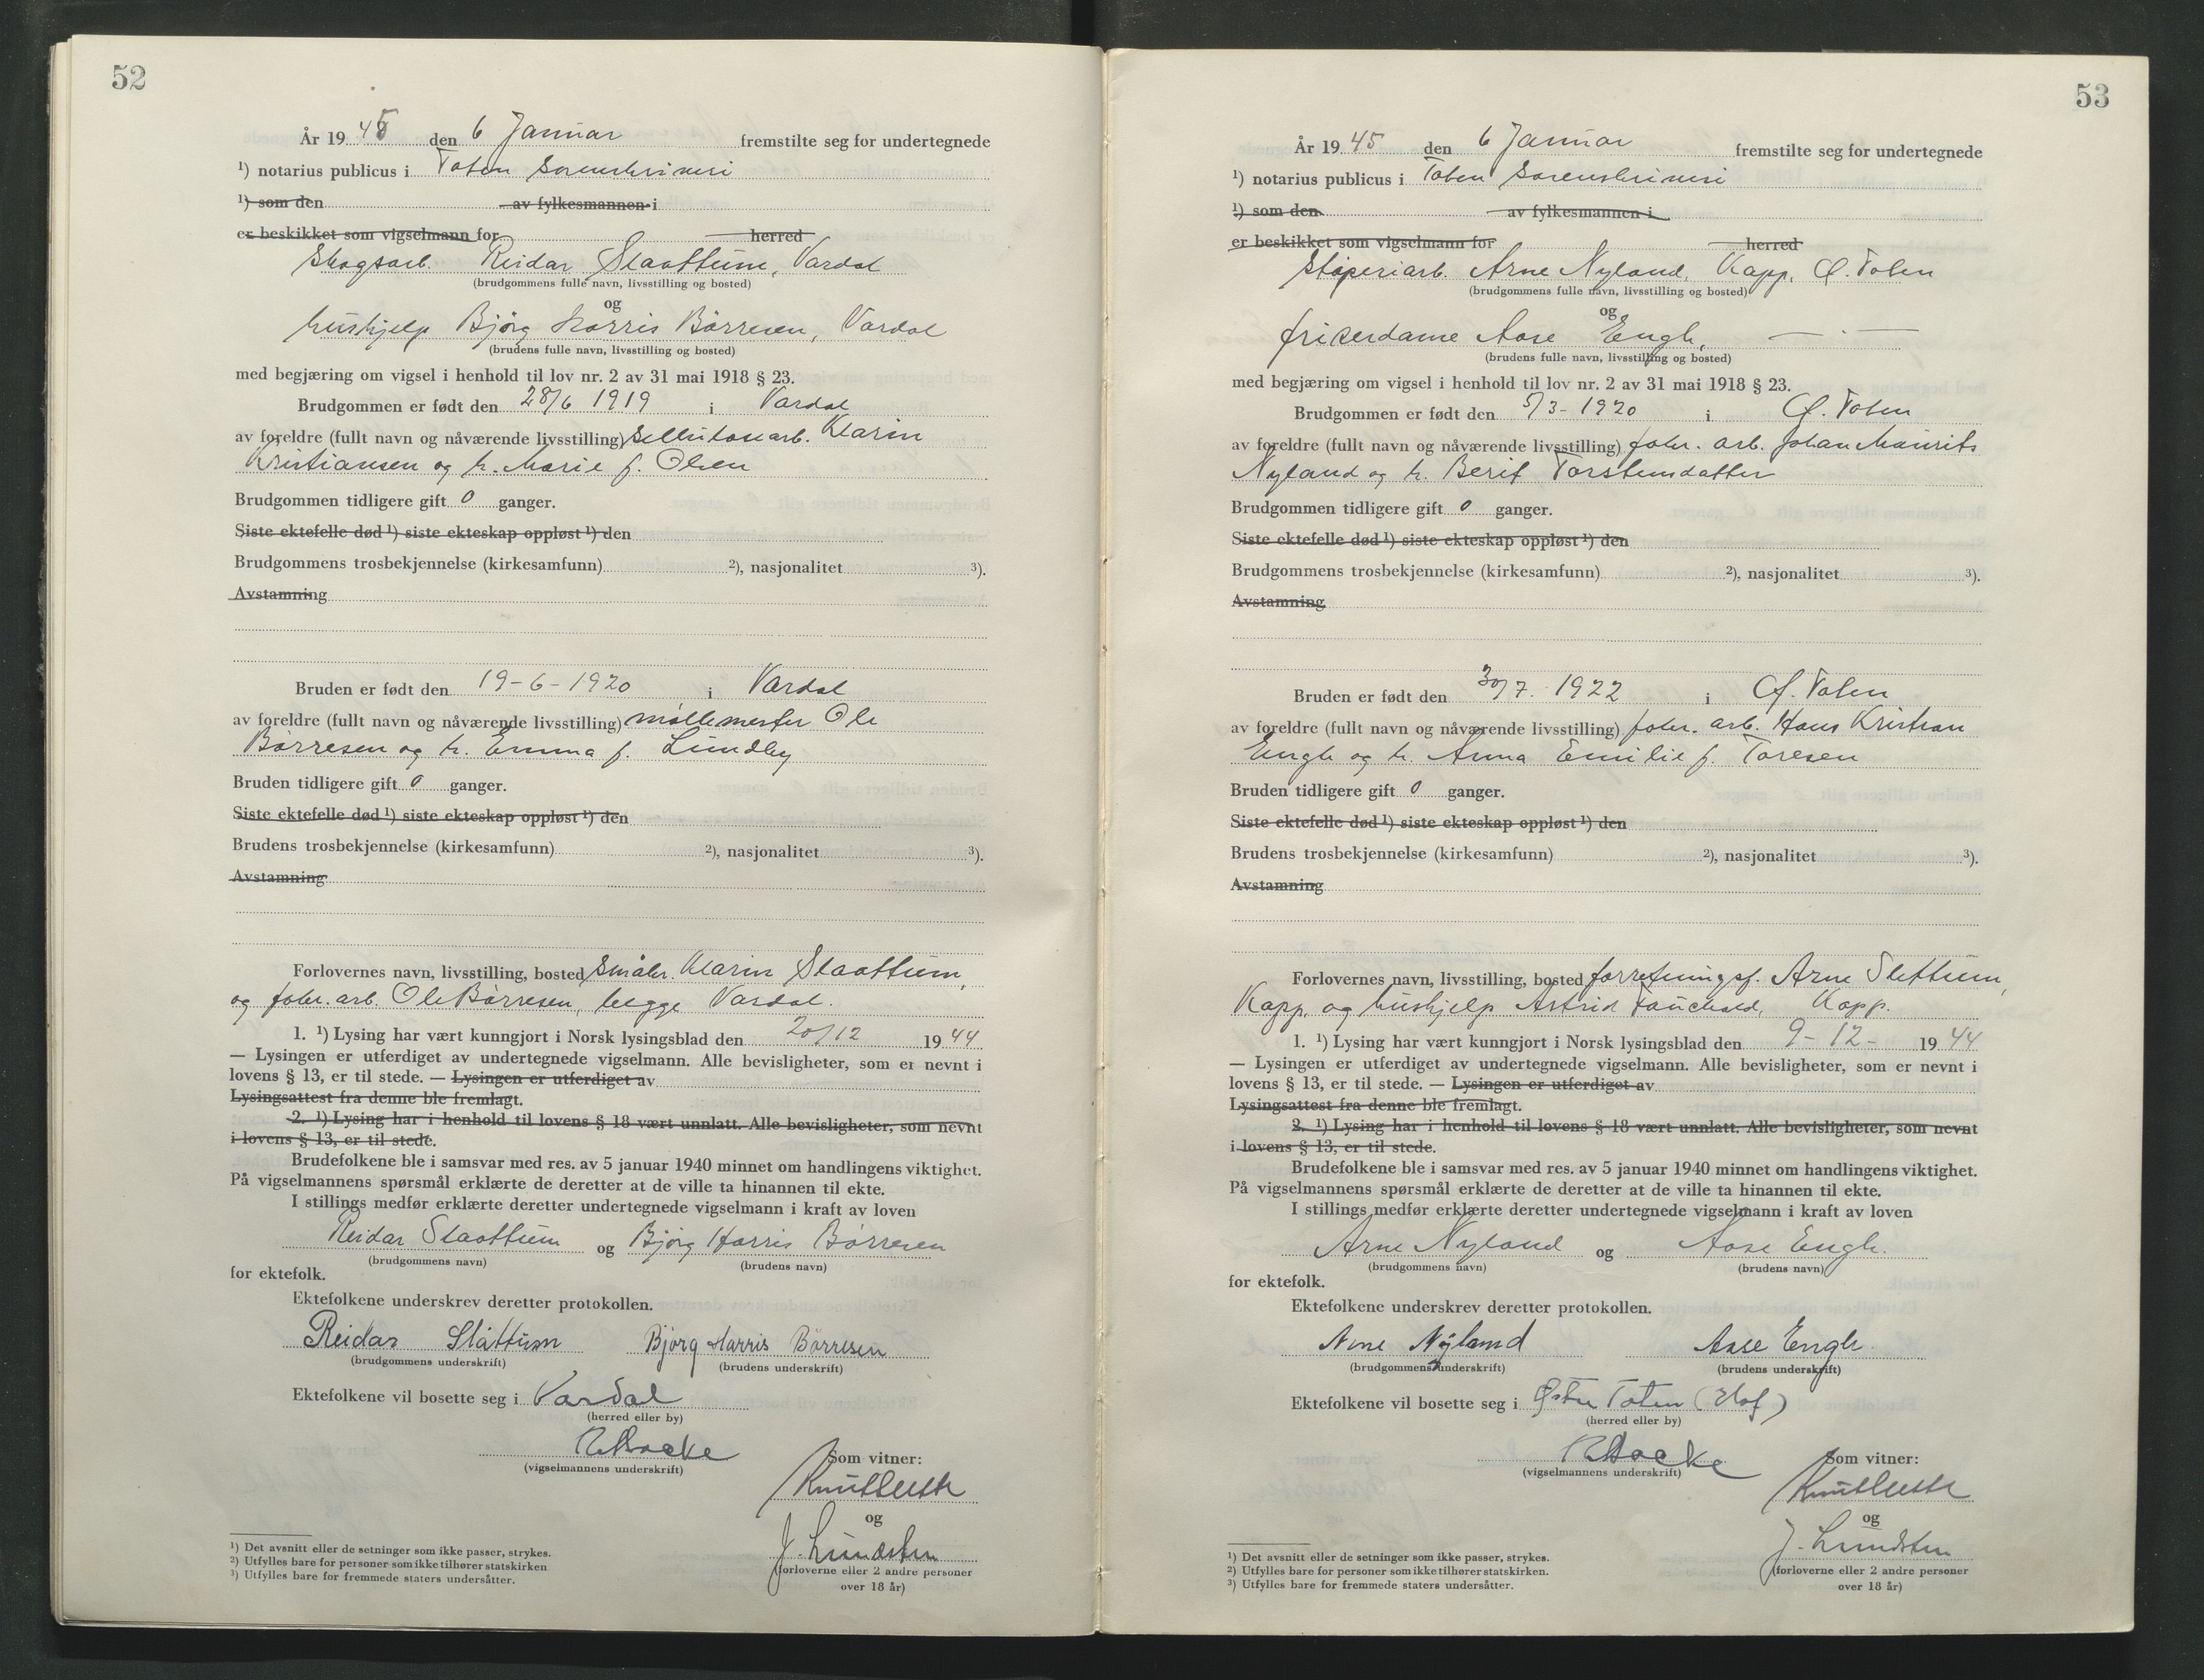 52
År 19 45 den 6 Januar fremstilte seg for undertegnede
1) notarius publicus i Toten Sorenskriveri
1) som den av fylkesmannen i
er beskikket som vigselmann for herred
Skogsarb. Reidar Slaattum, Vardal
(brudgommens fulle navn, livsstilling og bosted)
og
hushjelp Bjørg Harris Børresen, Vardal
(brudens fulle navn, livsstilling og bosted)
med begjæring om vigsel i henhold til lov nr. 2 av 31 mai 1918 § 23.
Brudgommen er født den 28/6 1919 i Vardal
av foreldre (fullt navn og nåværende livsstilling) Sellulosearb. Marin
Kristiansen og h. Marie f. Olsen
Brudgommen tidligere gift 0 ganger.
Siste ektefelle død 1) siste ekteskap oppløst 1) den
Brudgommens trosbekjennelse (kirkesamfunn) 2), nasjonalitet 3).
Avstamning
Bruden er født den 19-6-1920 i Vardal
av foreldre (fullt navn og nåværende livsstilling) møllemester Ole
Børresen og h. Emma f. Lundby
Bruden tidligere gift 0 ganger.
Siste ektefelle død 1) siste ekteskap oppløst 1) den
Brudens trosbekjennelse (kirkesamfunn) 2), nasjonalitet 3).
Avstamning
Forlovernes navn, livsstilling, bosted småbr. Marin Slaattum,
og fabr. arb. Ole Børresen, begge Vardal.
1. 1) Lysing har vært kunngjort i Norsk lysingsblad den 20/12 1944
— Lysingen er utferdiget av undertegnede vigselmann. Alle bevisligheter, som er nevnt i
lovens § 13, er til stede. — Lysingen er utferdiget av
Lysingsattest fra denne ble fremlagt.
2. 1) Lysing har i henhold til lovens § 18 vært unnlatt. Alle bevisligheter, som nevnt
i lovens § 13, er til stede.
Brudefolkene ble i samsvar med res. av 5 januar 1940 minnet om handlingens viktighet.
På vigselmannens spørsmål erklærte de deretter at de ville ta hinannen til ekte.
I stillings medfør erklærte deretter undertegnede vigselmann i kraft av loven
Reidar Slaattum og Bjørg Harris Børresen
(brudgommens navn) (brudens navn)
for ektefolk.
Ektefolkene underskrev deretter protokollen.
Reidar Slåttum Bjørg Harris Børresen
(brudgommens underskrift) (brudens underskrift)
Ektefolkene vil bosette seg i Vardal
(herred eller by)
(vigselmannens underskrift)
Som vitner:
og
J. Lundsten
(forloverne eller 2 andre personer
over 18 år)
1) Det avsnitt eller de setninger som ikke passer, strykes.
2) Utfylles bare for personer som ikke tilhører statskirken
3) Utfylles bare for fremmede staters undersåtter.
53
År 19 45 den 6 Januar fremstilte seg for undertegnede
1) notarius publicus i Toten Sorenskriveri
1) som den av fylkesmannen i
er beskikket som vigselmann for herred
Støperiarb. Arne Nyland, Kapp, Ø. Toten
(brudgommens fulle navn, livsstilling og bosted)
og
friserdame Aase Engh, — " —
(brudens fulle navn, livsstilling og bosted)
med begjæring om vigsel i henhold til lov nr. 2 av 31 mai 1918 § 23.
Brudgommen er født den 5/3-1920 i Ø. Toten
av foreldre (fullt navn og nåværende livsstilling) fabr. arb. Johan Maurits
Nyland og h. Berit Torsteinsdatter
Brudgommen tidligere gift 0 ganger.
Siste ektefelle død 1) siste ekteskap oppløst 1) den
Brudgommens trosbekjennelse (kirkesamfunn) 2), nasjonalitet 3).
Avstamning
Bruden er født den 30/7. 1922 i Ø. Toten
av foreldre (fullt navn og nåværende livsstilling) fabr. arb. Hans Kristian
Engh og h. Anna Emilie f. Toresen
Bruden tidligere gift 0 ganger.
Siste ektefelle død 1) siste ekteskap oppløst 1) den
Brudens trosbekjennelse (kirkesamfunn) 2), nasjonalitet 3).
Avstamning
Forlovernes navn, livsstilling, bosted forretningsf. Arne Slettum,
Kapp, og hushjelp Astrid Fauchald, Kapp.
1. 1) Lysing har vært kunngjort i Norsk lysingsblad den 9-12- 1944
— Lysingen er utferdiget av undertegnede vigselmann. Alle bevisligheter, som er nevnt i
lovens § 13, er til stede. — Lysingen er utferdiget av
Lysingsattest fra denne ble fremlagt.
2. 1) Lysing har i henhold til lovens § 18 vært unnlatt. Alle bevisligheter, som nevnt
i lovens § 13, er til stede.
Brudefolkene ble i samsvar med res. av 5 januar 1940 minnet om handlingens viktighet.
På vigselmannens spørsmål erklærte de deretter at de ville ta hinannen til ekte.
I stillings medfør erklærte deretter undertegnede vigselmann i kraft av loven
Arne Nyland og Aase Engh.
(brudgommens navn) (brudens navn)
for ektefolk.
Ektefolkene underskrev deretter protokollen.
Arne Nyland Aase Engh.
(brudgommens underskrift) (brudens underskrift)
Ektefolkene vil bosette seg i Østre Toten (Hof)
(herred eller by)
(vigselmannens underskrift)
Som vitner:
og
J. Lundsten
(forloverne eller 2 andre personer
over 18 år)
1) Det avsnitt eller de setninger som ikke passer, strykes.
2) Utfylles bare for personer som ikke tilhører statskirken.
3) Utfylles bare for fremmede staters undersåtter.